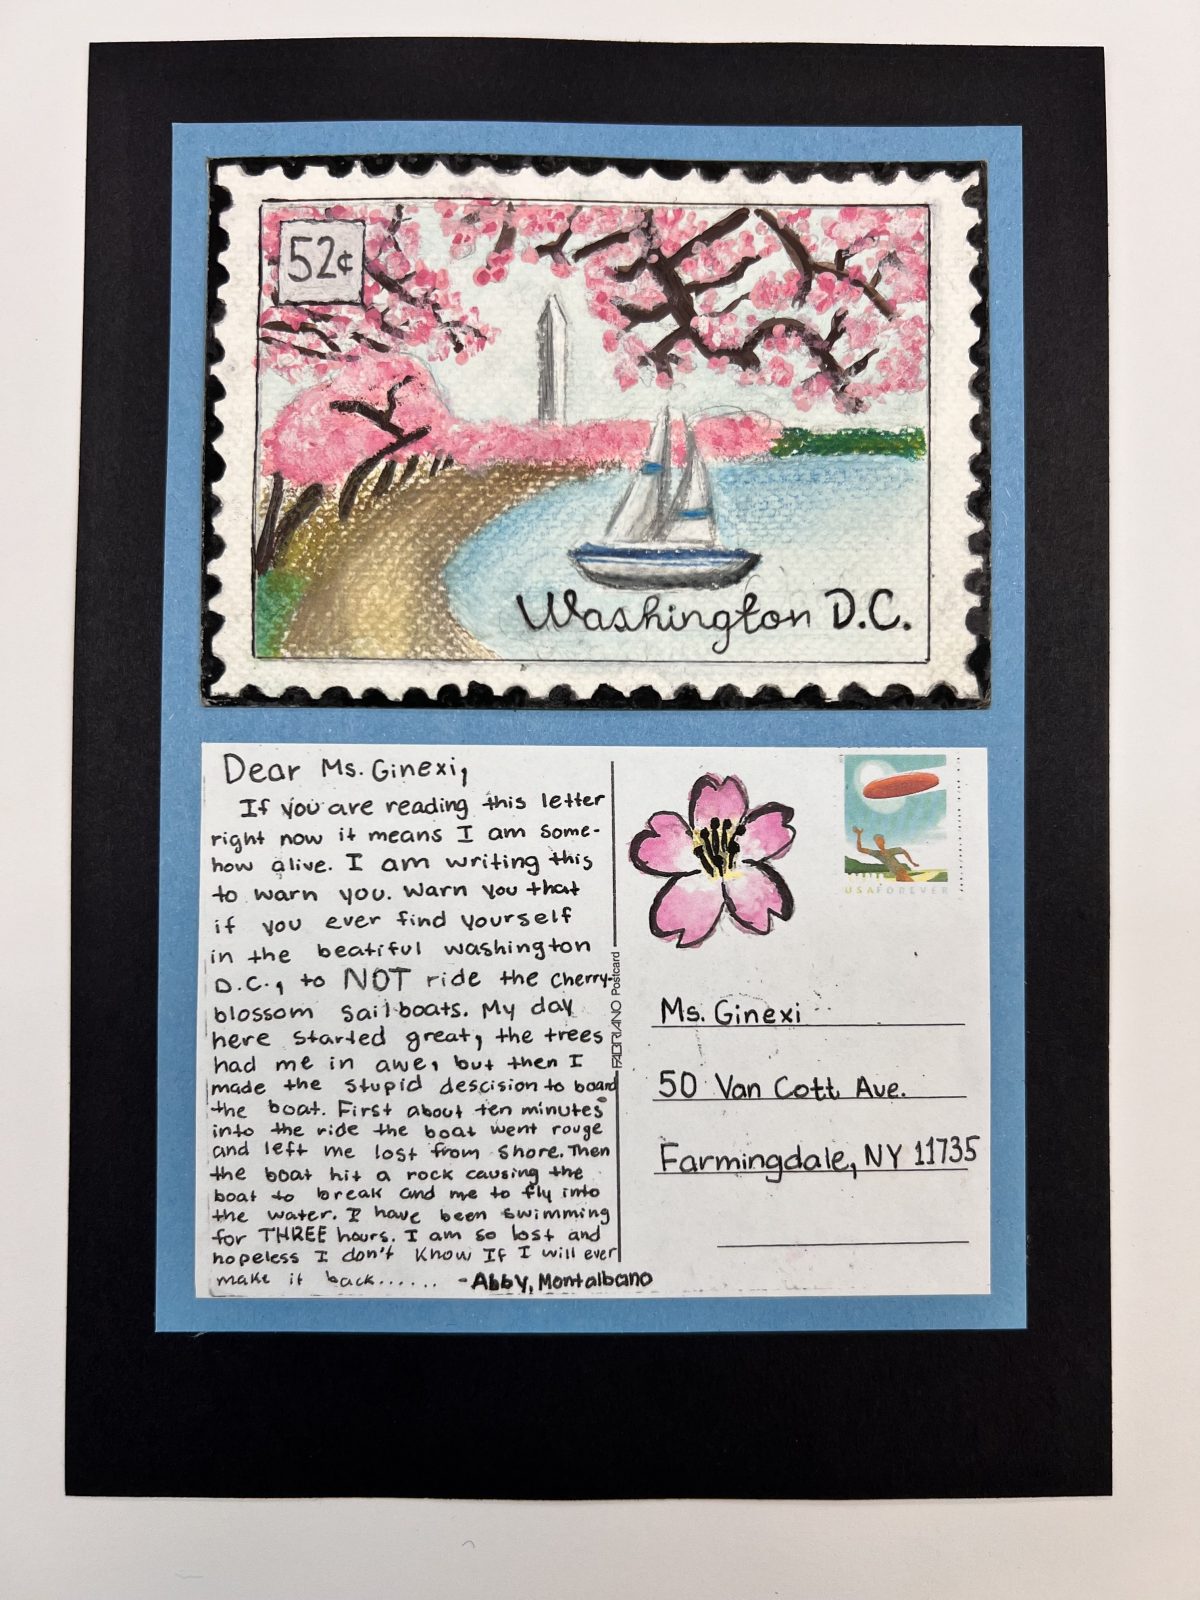 52¢
Washington D.C.
Dear Ms. Ginexi,
If you are reading this letter
right now it means I am some-
how alive. I am writing this
to warn you. Warn you that
if you ever find yourself
in the beatiful washington
D.C., to NOT ride the cherry-
blossom sailboats. My day
here started great, the trees
had me in awe, but then I
made the stupid descision to board
the boat. First about ten minutes
into the ride the boat went rouge
and left me lost from shore. Then
the boat hit a rock causing the
boat to break and me to fly into
the water. I have been swimming
for THREE hours. I am so lost and
hopeless I don't know If I will ever
make it back......
-Abby, Montalbano
FABRIANO Postcard
USAFOREVER
Ms. Ginexi
50 Van Cott Ave.
Farmingdale, NY 11735